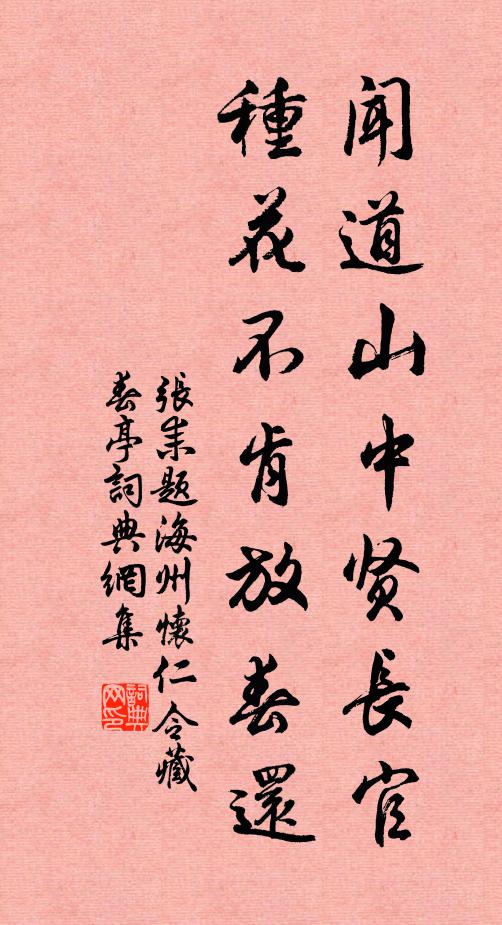 聞道山中贤長官
種花不肯放春還
張耒题海州懷仁令藏
春亭詞典網集
詞典
网印